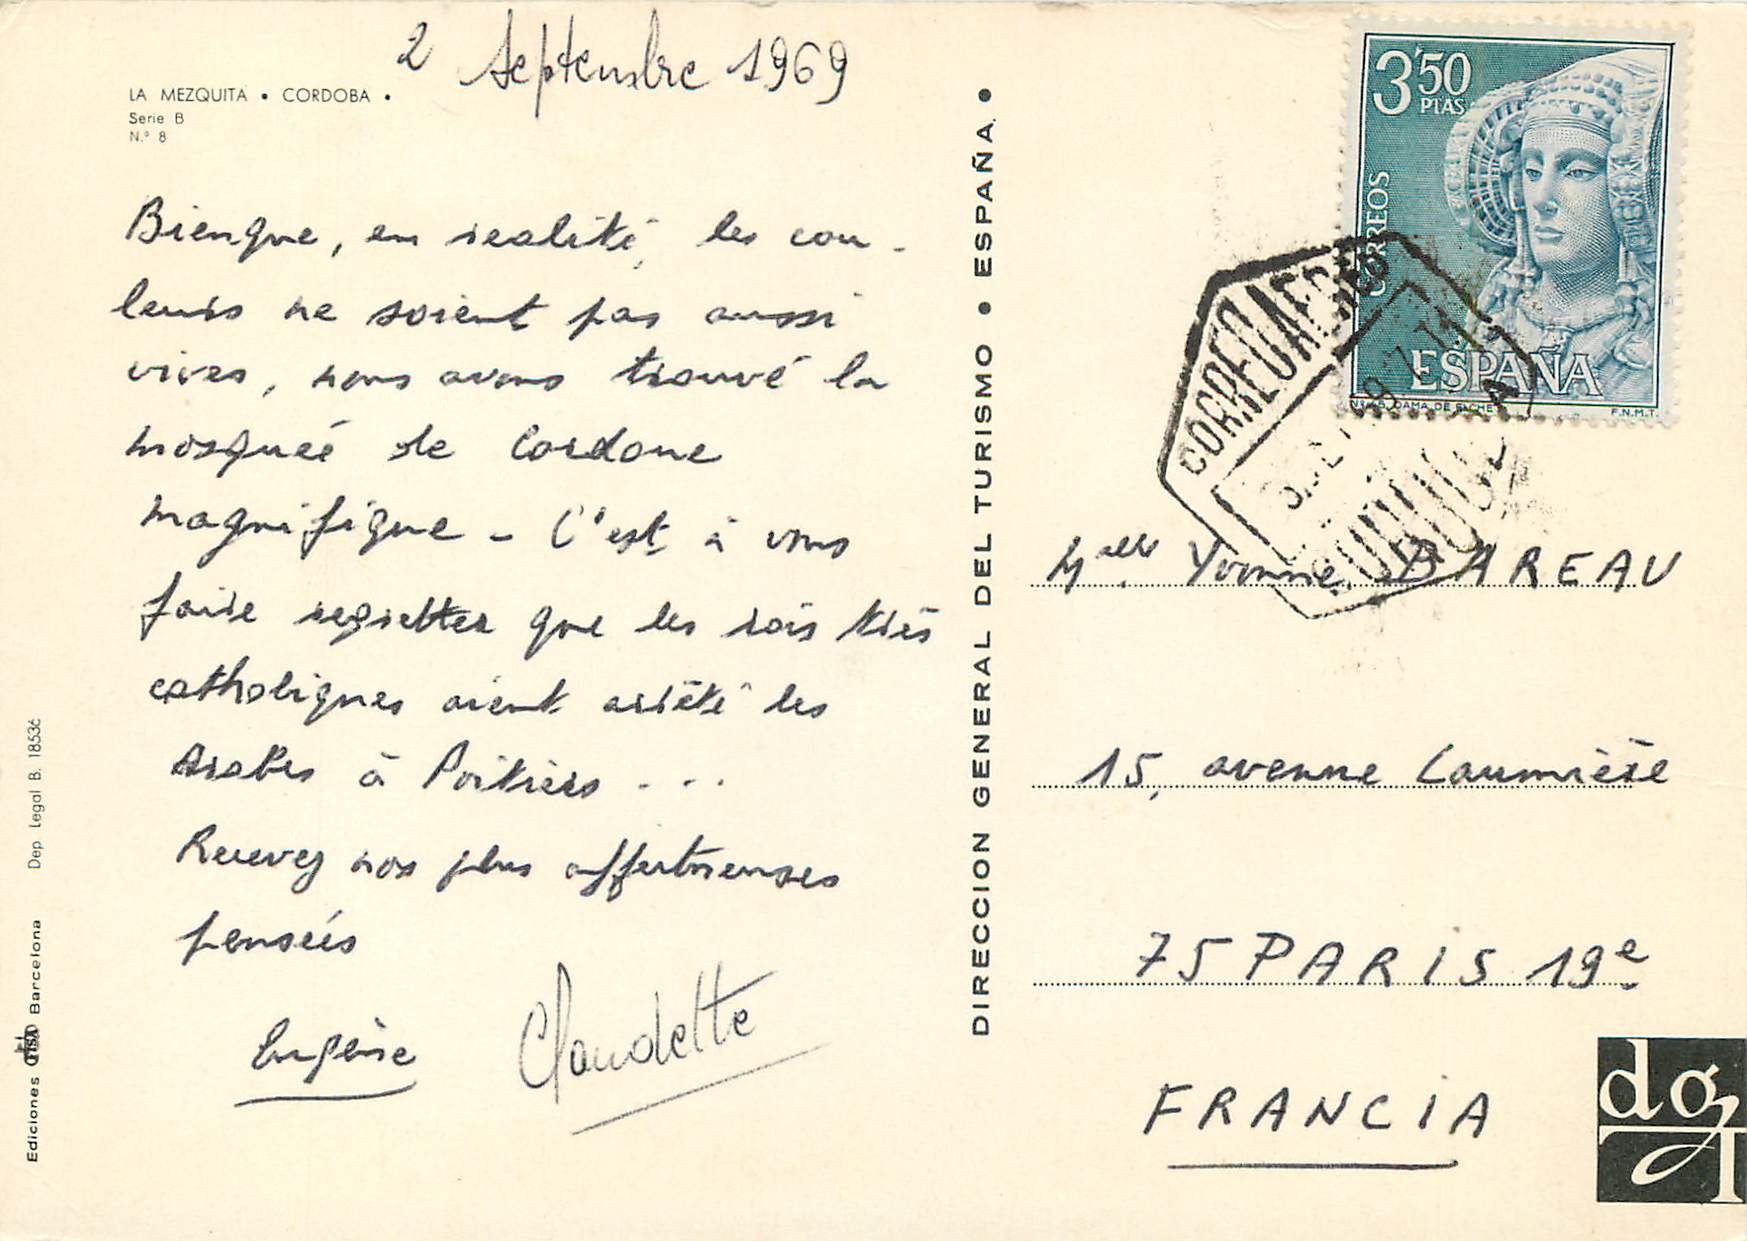 2 Septembre 1969
LA MEZQUITA • CORDOBA •
Serie B
N.º 8
Bienque, en realité, les cou-
leurs ne soient pas aussi
vives, nous avons trouvé la
mosquée de Cordoue
magnifique - C'est à vous
faire regretter que les rois très
catholiques aient arrêté les
Arabes à Poitiers ...
Recevez nos plus affectueuses
pensées
Eugène
Claudette
Ediciones Barcelona Dep. Legal B. 18536
DIRECCION GENERAL DEL TURISMO • ESPAÑA •
3'50
PTAS
CORREOS
ESPAÑA
DAMA DE ELCHE
F.N.M.T.
CORREO AEREO
Melle Yvonne BAREAU
15, avenue Laumière
75 PARIS 19e
FRANCIA
dgT